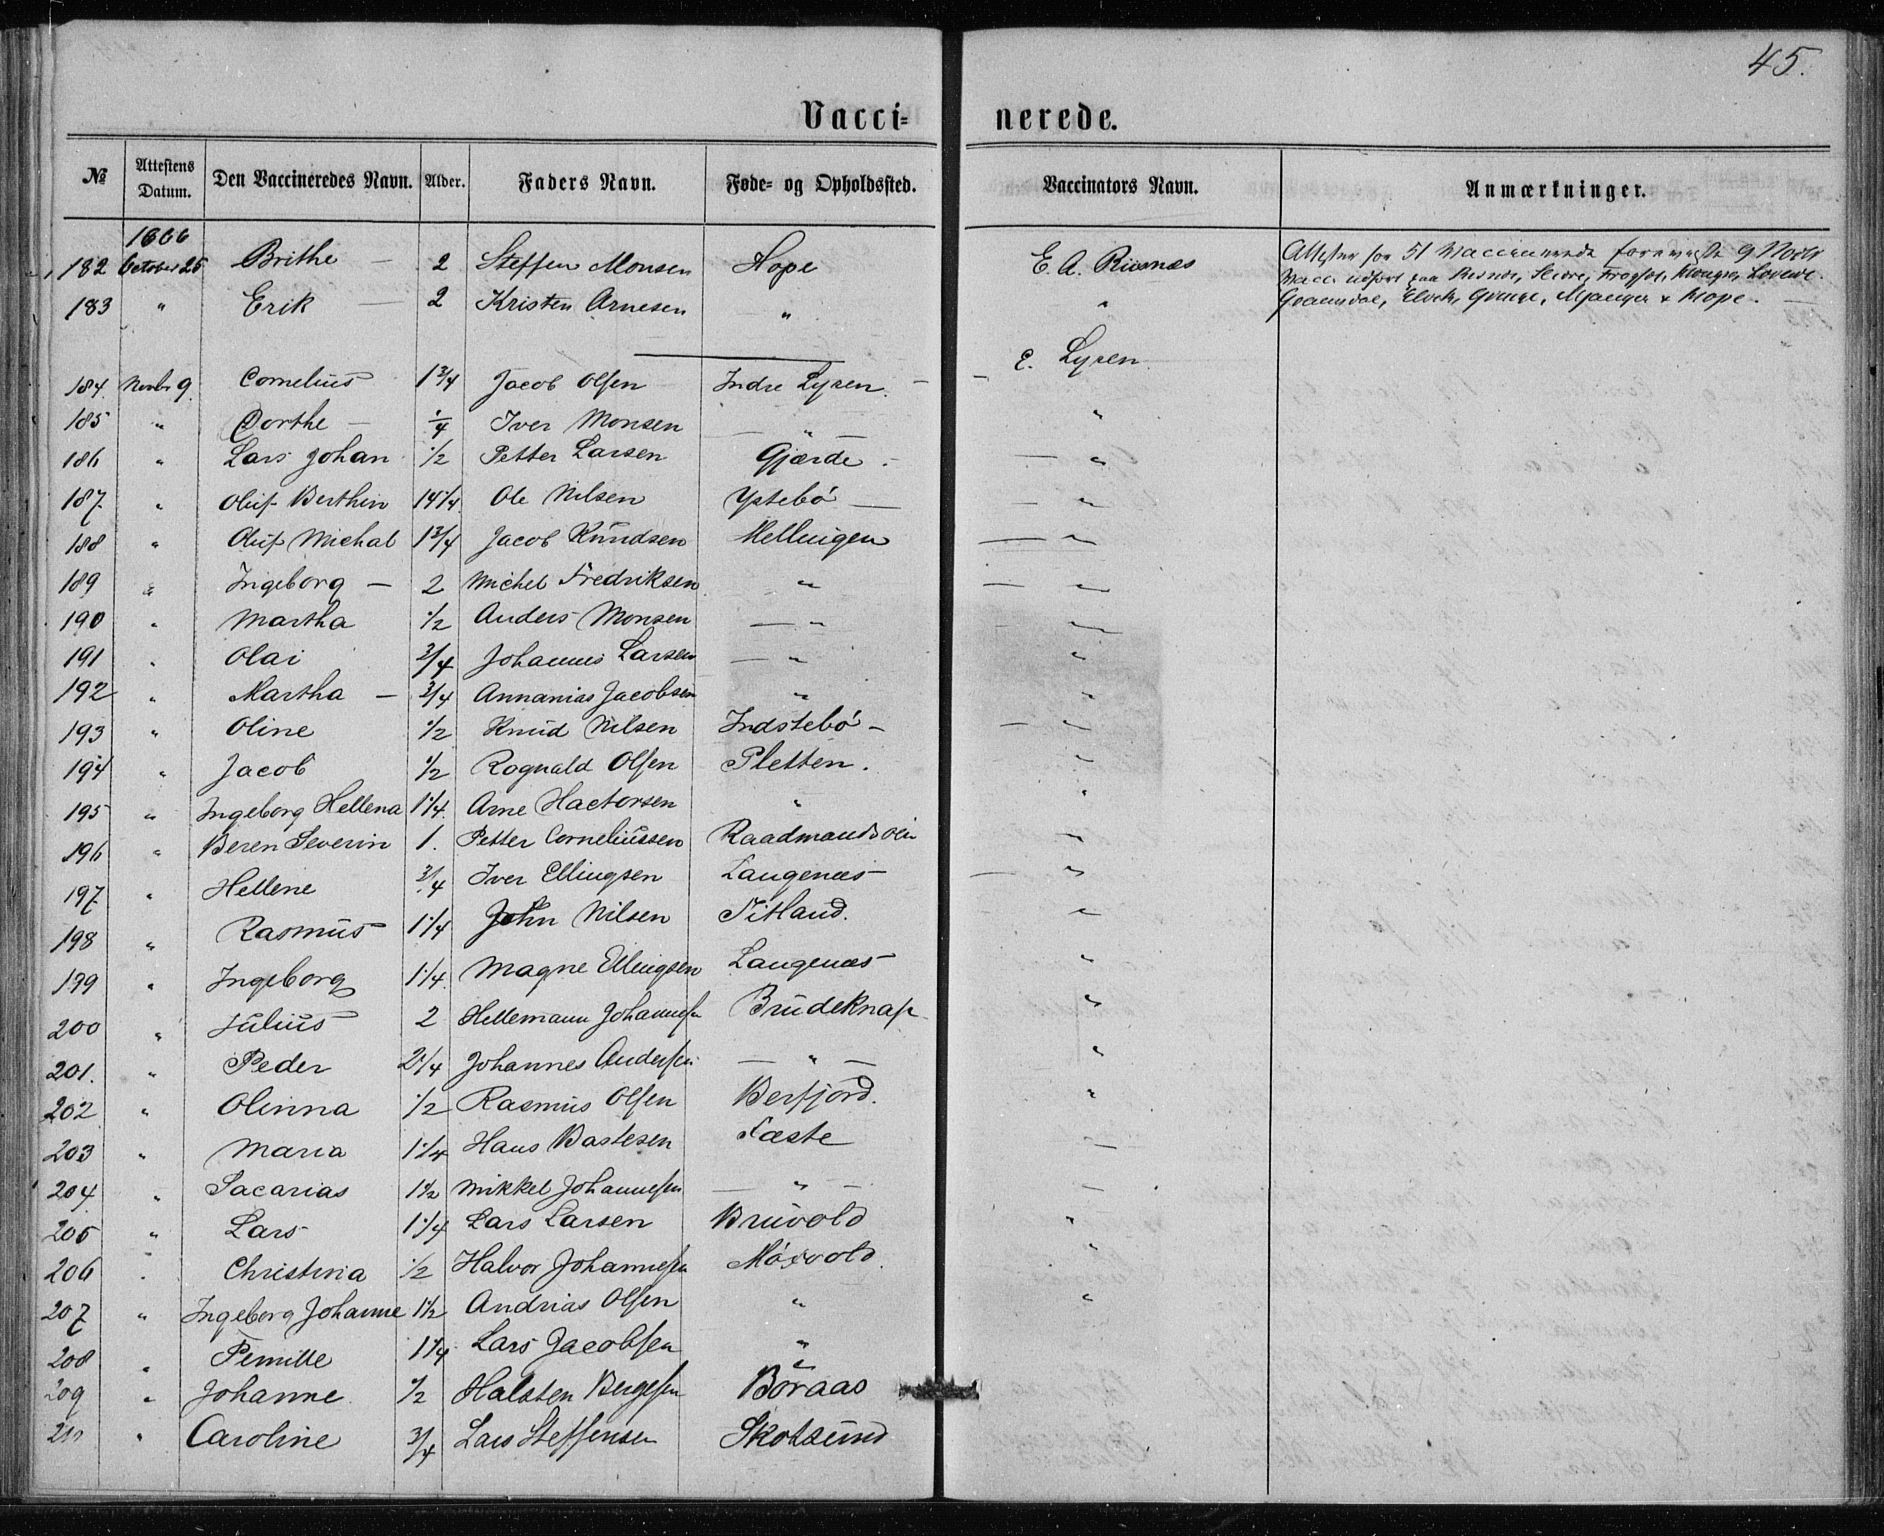 45.
Vacci- nerede.
№ Attestens Datum. Den Vaccineredes Navn. Alder. Faders Navn. Føde- og Opholdssted. Vaccinators Navn. Anmærkninger.
1866
182 October 25 Brithe — 2 Steffen Monsen Hope E. A. Risnæs Attester for 51 Vaccinerede
183 " Erik — 2 Kristen Arnesen " " Mjanger & Hope. —
184. Novbr 9. Cornelius 1 3/4 Jacob Olsen Indre Lyren. — E. Lyren
185 " Dorthe — 1/4 Iver Monsen — " — "
186 " Lars Johan 1/2 Petter Larsen Gjærde. — — "
187. " Oluf Berthin 1 1/4 Ole Nilsen Ystebö — — "
188 " Oluf Michal 1 3/4 Jacob Knudsen Mellingen — "
189 " Ingeborg — 2 Michel Fredriksen " — "
190 " Martha 1/2 Anders Monsen — " — "
191 " Olai 3/4 Johannes Larsen — " "
192 " Martha — 3/4 Annanias Jacobsen " "
193 " Oline 1/2 Knud Nilsen Indstebö — — "
194 " Jacob 1/2 Rognald Olsen Pletten. "
195 " Ingeborg Hellena 1 1/4 Arne Hactorsen " "
196 " Beren Severin 1. Petter Corneliussen "
197. " Hellene 3/4 Iver Ellingsen Langenæs — "
198 " Rasmus 1 1/4 John Nilsen Titland. "
199 " Ingeborg 1 1/4 Magne Ellingsen Langenæs "
200 " Julius 2 Hellemann Johannesen Brudeknap "
201. " Peder 2 1/4 Johannes Andersen — " — "
202 " Olinna 1/2 Rasmus Olsen Berfjord. "
203 " Maria 1 1/4 Hans Bastesen Tæste —
204 " Sacarias 1 1/2 Mikkel Johannesen — " — —
205 " Lars 1 1/4 Lars Larsen Bruvold "
206 " Christina 1/2 Halvor Johannesen "
207 " Ingeborg Johanne 1 1/2 Andrias Olsen " "
208 " Pernille 1 1/4 Lars Jacobsen "
209 " Johanne 1/2 Halsten Bergesen Boraas
210 " Caroline 3/4 Lars Steffensen Skotsund